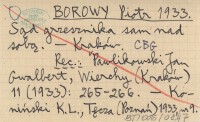 BOROWY Piotr 1933.
Sąd grzesznika sam nad
sobą. – Kraków. CBG
Rec.: Pawlikowski Jan
Gwalbert, Wierchy (Kraków)
11 (1933): 265-266. Ko-
niński K.L., Tęcza (Poznań) 1933, nr 9.